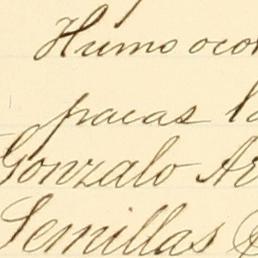 Humo oco
pacas l
Gonzalo Ar
Semillas